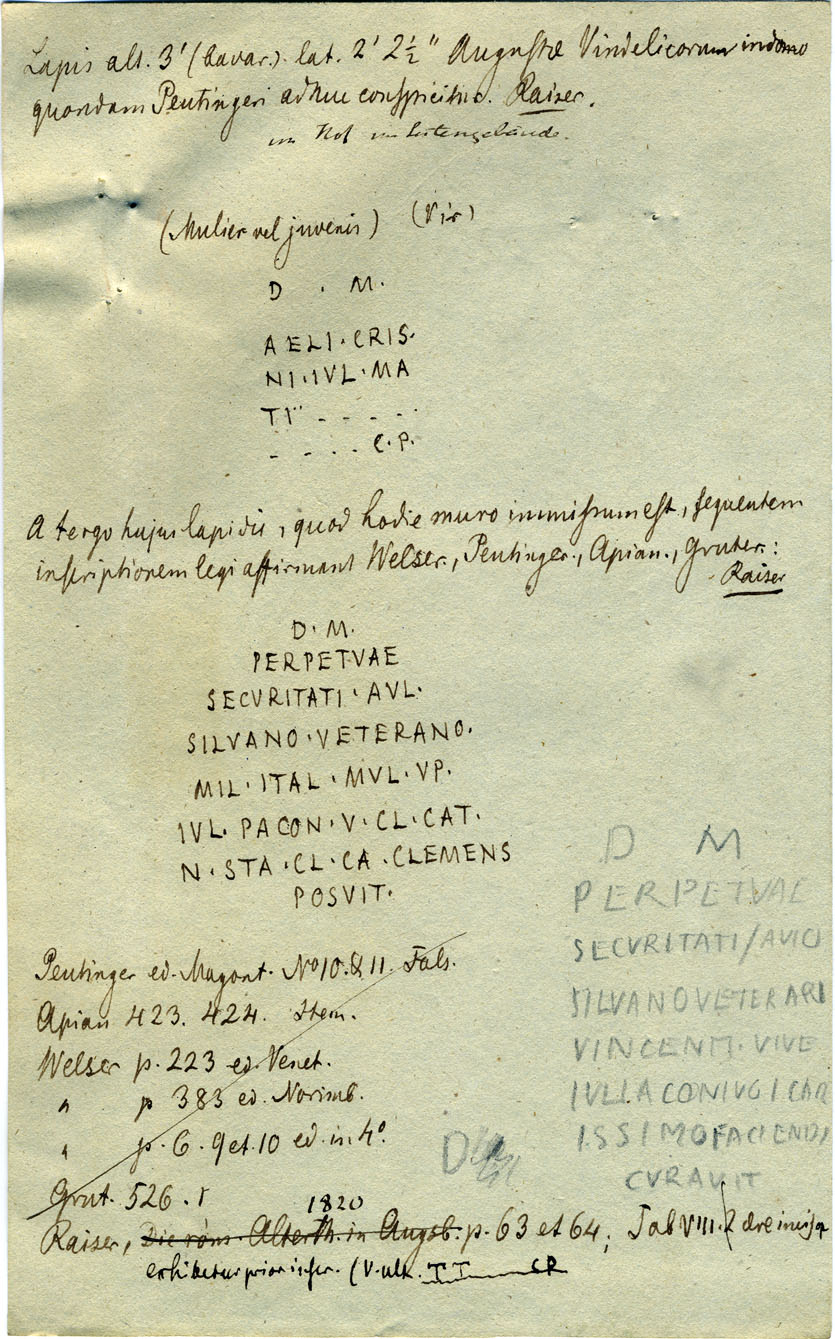 Lapis alt. 3' (bavar.) lat. 2' 2½" Augustæ Vindelicorum in domo
quondam Peutingeri adhuc conspicitur. Raiser.
im Hof im Seitengebäude.
(Mulier vel juvenis) (Vir)
D . M.
AELI·CRIS·
NI·IVL·MA
TI" - - - -
- - - - C.P.
A tergo hujus lapidis, quod hodie muro immissum est, sequentem
inscriptionem legi affirmant Welser., Peutinger., Apian., Gruter.:
Raiser
D·M.
PERPETVAE
SECVRITATI·AVL·
SILVANO·VETERANO.
MIL·ITAL·MVL·VP.
IVL·PACON·V·CL·CAT.
N·STA·CL·CA·CLEMENS
POSVIT.
D M
PERPETVAE
SECVRITATI/AVICI
SILVANOVETERARI
VINCENTI·VIVE
IVLLACONIVGICAR
ISSIMOFACIENDI
CVRAVIT
Peutinger ed. Magont. No 10. & 11. Fals.
Apian 423. 424. Item.
Welser p. 223 ed. Venet.
" p 383 ed. Norimb.
" p. 6. 9 et. 10 ed. in 4°.
D
Grut. 526. 1
1820
Raiser, Die röm. Alterth. in Augsb. p. 63 et 64, Tab VIII. 2 ære incisa
exhibetur prior inscr. (V. ult. TT CP